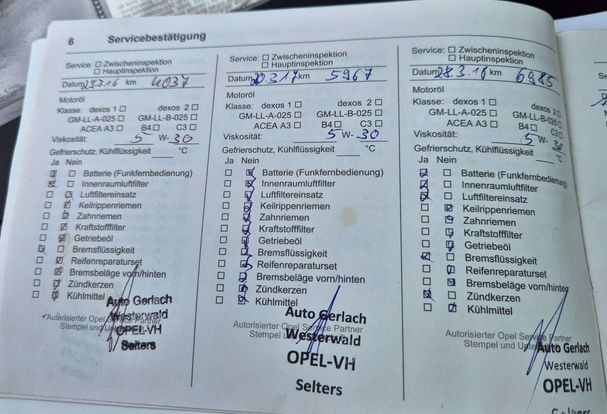 6 Servicebestätigung
Service: Zwischeninspektion
Hauptinspektion
Datum 28.3.16 km 4037
Motoröl
Klasse: dexos 1 dexos 2
GM-LL-A-025 GM-LL-B-025
ACEA A3 B4 C3
Viskosität: 5 W- 30
Gefrierschutz, Kühlflüssigkeit °C
Ja Nein
Batterie (Funkfernbedienung)
Innenraumluftfilter
Luftfiltereinsatz
Keilrippenriemen
Zahnriemen
Kraftstofffilter
Getriebeöl
Bremsflüssigkeit
Reifenreparaturset
Bremsbeläge vorn/hinten
Zündkerzen
Kühlmittel
Autorisierter Opel Service Partner
Stempel und
Auto Gerlach
Westerwald
OPEL-VH
Selters
Service: Zwischeninspektion
Hauptinspektion
Datum 20.3.17 km 5967
Motoröl
Klasse: dexos 1 dexos 2
GM-LL-A-025 GM-LL-B-025
ACEA A3 B4 C3
Viskosität: 5 W- 30
Gefrierschutz, Kühlflüssigkeit °C
Ja Nein
Batterie (Funkfernbedienung)
Innenraumluftfilter
Luftfiltereinsatz
Keilrippenriemen
Zahnriemen
Kraftstofffilter
Getriebeöl
Bremsflüssigkeit
Reifenreparaturset
Bremsbeläge vorn/hinten
Zündkerzen
Kühlmittel
Autorisierter Opel Service Partner
Stempel und
Auto Gerlach
Westerwald
OPEL-VH
Selters
Service: Zwischeninspektion
Hauptinspektion
Datum km 6985
Motoröl
Klasse: dexos 1 dexos 2
GM-LL-A-025 GM-LL-B-025
ACEA A3 B4 C3
Viskosität: 5 W- 30
Gefrierschutz, Kühlflüssigkeit °C
Ja Nein
Batterie (Funkfernbedienung)
Innenraumluftfilter
Luftfiltereinsatz
Keilrippenriemen
Zahnriemen
Kraftstofffilter
Getriebeöl
Bremsflüssigkeit
Reifenreparaturset
Bremsbeläge vorn/hinten
Zündkerzen
Kühlmittel
Autorisierter Opel Service Partner
Stempel und
Auto Gerlach
Westerwald
OPEL-VH